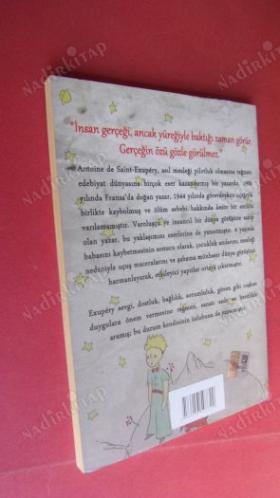 "İnsan gerçeği, ancak yüreğiyle baktığı zaman görür.
Gerçeğin özü gözle görülmez."
Antoine de Saint-Exupéry, asıl mesleği pilotluk olmasına rağmen
edebiyat dünyasına birçok eser kazandırmış bir yazardır. 1900
yılında Fransa'da doğan yazar, 1944 yılında görevdeyken uçağıyla
birlikte kaybolmuş ve ölüm sebebi hakkında kesin bir
varılamamıştır. Varoluşçu ve insancıl bir dünya görüşüne sahip
olan yazar, bu yaklaşımını eserlerine de yansıtmıştır.
babasını kaybetmesinin sonucu olarak, çocukluk anılarını, mesleği
nedeniyle uçuş maceralarını ve şahsına münhasır dünya görüşünü
harmanlayarak, etkileyici yapıtlar ortaya çıkarmıştır.
Exupéry sevgi, dostluk, bağlılık, sorumluluk, güven gibi
duygulara önem vermesine rağmen,
aramış; bu durum kendisinin
NADİRKİTAP